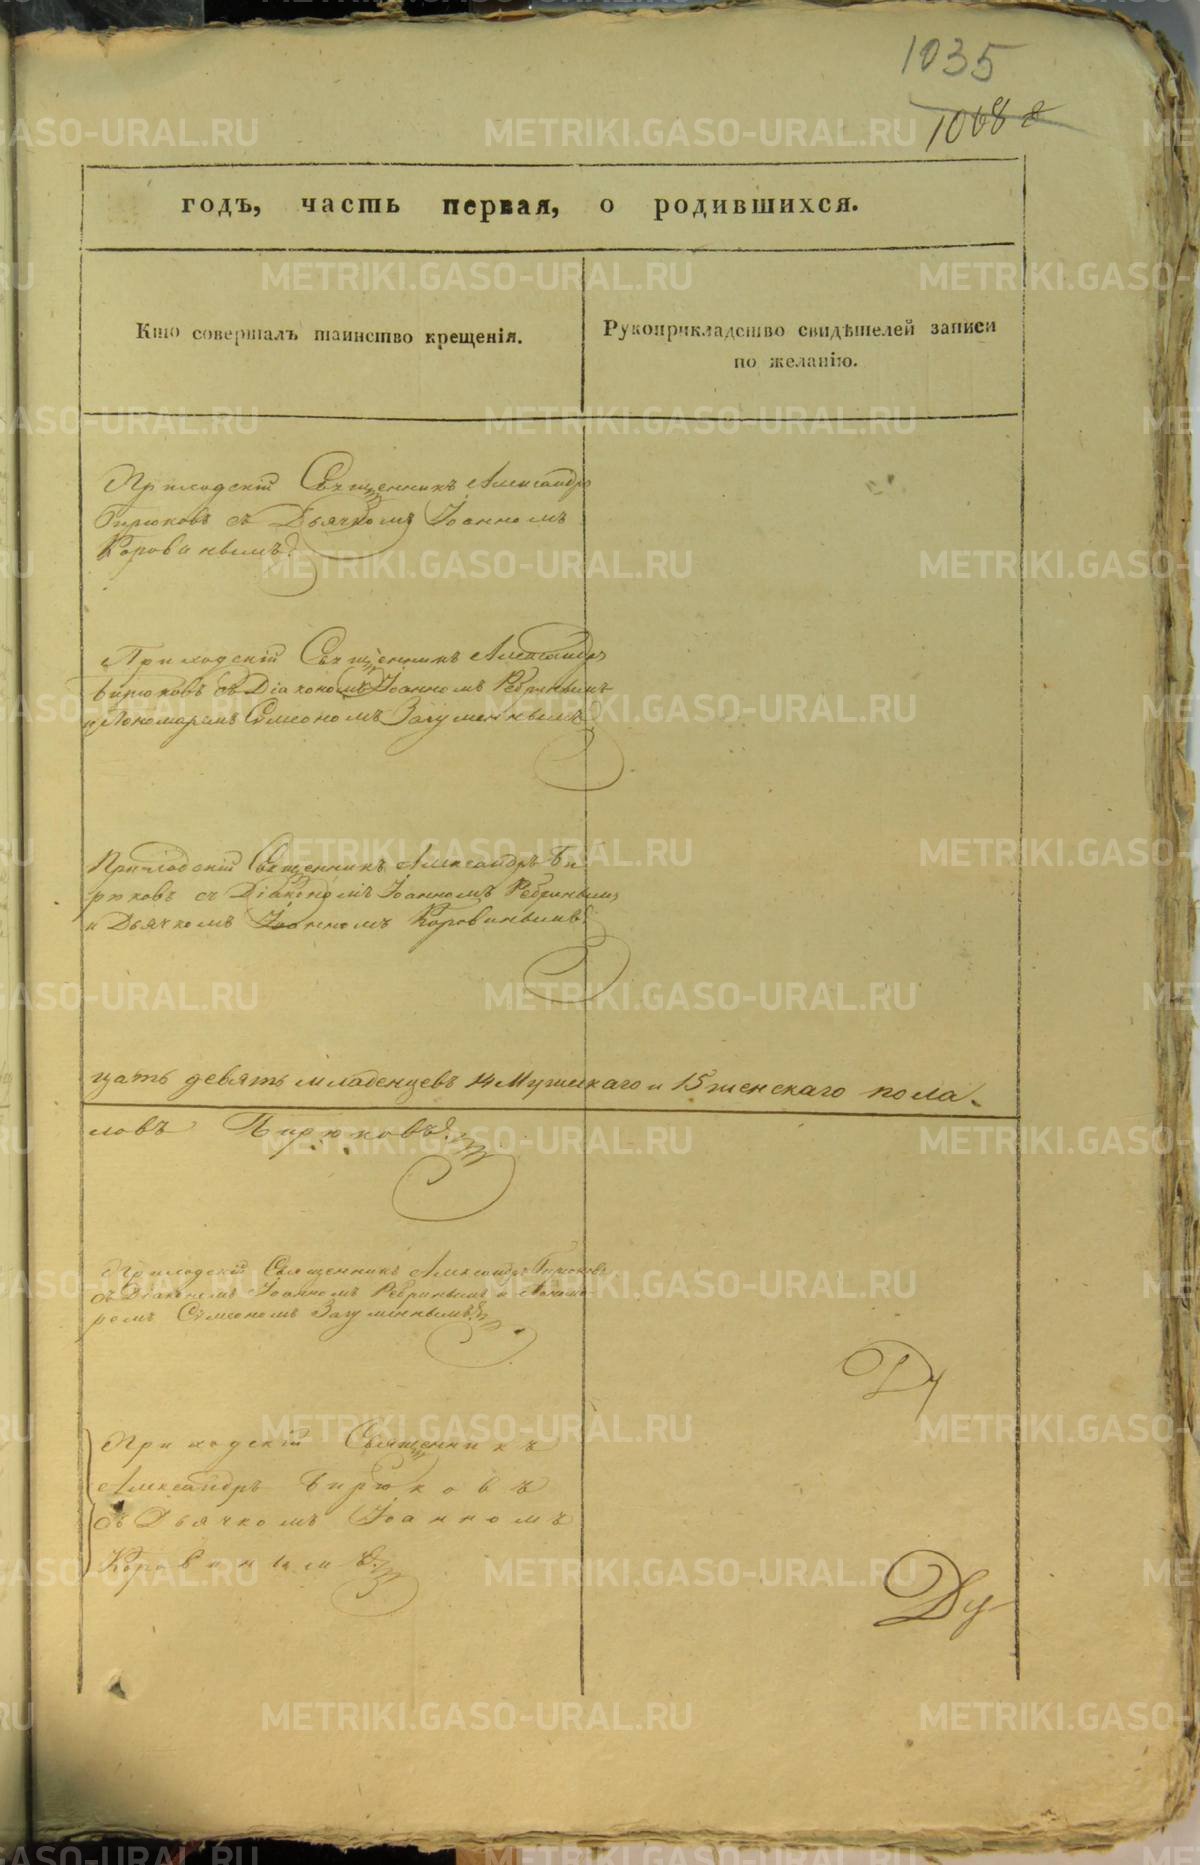 1035
1068
годъ, часть первая, о родившихся.
Кто совершалъ таинство крещенія.
Рукоприкладство свидѣтелей записи
по желанію.
Приходскій Священникъ Александръ
Бирюковъ съ Дьячкомъ Іоанномъ
Коровинымъ.
Приходскій Священникъ Александръ
Бирюковъ съ Діакономъ Іоанномъ Ребринымъ
и Пономаремъ Симеономъ Загуменнымъ
Приходскій Священникъ Александръ Би-
рюковъ съ Діакономъ Іоанномъ Ребринымъ
и Дьячкомъ Іоанномъ Коровинымъ.
цать девять младенцевъ 14 Мужескаго и 15 женскаго пола.
ловъ Бирюковъ.
Приходскій Священникъ Александръ Бирюковъ
съ Діакономъ Іоанномъ Ребринымъ и Понома-
ремъ Симеономъ Загуменнымъ
Приходскій Священникъ
Александръ Бирюковъ
съ Дьячкомъ Іоанномъ
Коровинымъ.
METRIKI.GASO-URAL.RU